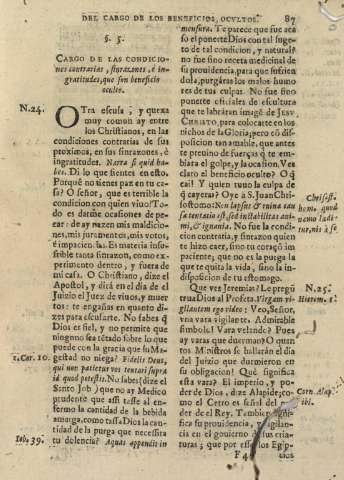 DEL CARGO DE LOS BENEFICIOS, OCULTOS. 87
§. 5.
CARGO DE LAS CONDICIO-
nes contrarias, sinrazones, è in-
gratitudes, que son beneficio
oculto.
N.24.
OTra escusa; y quexa
muy comun ay entre
los Christianos, en las
condiciones contrarias de sus
proximos, en sus sinrazones, è
ingratitudes. Narra si quid ha-
bes. Di lo que sientes en esto.
Porquè no tienes paz en tu ca-
sa? O Señor, que es terrible la
condicion con quien vivo! To-
do es darme ocasiones de pe-
car: de ay nazen mis maldicio-
nes, mis juramentos, mis votos,
è impaciencias. Es materia insu-
frible tanta sinrazon, como ex-
perimento dentro, y fuera de
mi casa. O Christiano, dize el
Apostol, y dirà en el dia del
Juizio el Juez de vivos, y muer-
tos: te engañas en quanto di-
zes para escusarte. No sabes que
Dios es fiel, y no permite que
ninguno sea tẽtado sobre lo que
puede con la gracia que su Ma-
1. Cor. 10.
gestad no niega? Fidelis Deus,
qui non patietur vos tentari supra
id quod potestis. No sabes (dize el
Santo Job) que no ay Medico
prudente que assi tasse al en-
fermo la cantidad de la bebida
amarga, como tassa Dios la can-
tidad de la purga que necessita
Iob. 39.
tu dolencia? Aquas appendit in
mensura. Te parece que fue aca-
so el ponerte Dios con tal suge-
to de tal condicion, y natural?
no fue sino receta medicinal de
su providencia, para que sufrien
dola, purgàras los malos humo
res de tus culpas. No fue sino
ponerte oficiales de escultura
que te labràran imagẽ de JESU
CHRISTO, para colocarte en los
nichos de la Gloria; pero cõ dis-
posicion tan amable, que antes
te previno de fuerças q̃ te em-
biara el golpe, y la ocasion. Ves
claro el beneficio oculto? O q̃
cai! Y quien tuvo la culpa de
q̃ cayeras? Oye à S. Juan Chri-
sostomo: Non lapsus & ruina cau
sa tentatio est, sed instabilitas ani-
mi, & ignavia. No fue la condi-
cion contraria, y sinrazon quien
te hizo caer, sino tu coraçõ im-
paciente, que no es la purga la
que te quita la vida, sino la in-
disposicion de tu estomago.
N.25.
Que vee Jeremias? Le pregũ
Hierem. 1.
tava Dios al Profeta. Virgam vi-
gilantem ego video: Veo, Señor,
vna vara vigilante. Admirable
simbolo! Vara velando? Pues
ay varas que duerman? O quan
tos Ministros se hallaràn el dia
del Juizio que durmieron en
su obligacion! Què significa
esta vara? El imperio, y po-
der de Dios, dize Alapide, co-
Corn. Alap.
mo el Cetro es señal del po-
der de el Rey. Tambien signi-
fica su providencia, y vigilan-
cia en el govierno de sus cria-
turas; que por esso los Egip-
F 4